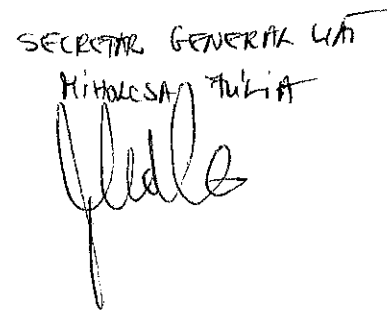 SECRETAR GENERAL UAT
MIHALCSA JÚLIA